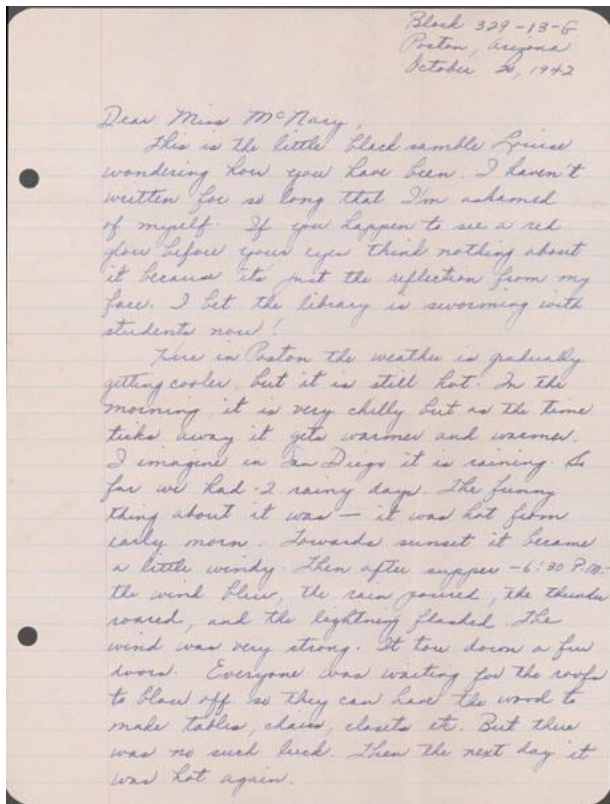 Block 329-13-G
Poston, Arizona
October 20, 1942
Dear Miss McNary,
This is the little black sambo Louise
wondering how you have been. I haven't
written for so long that I'm ashamed
of myself. If you happen to see a red
glow before your eyes think nothing about
it because its just the reflection from my
face. I bet the library is sworming with
students now!
Here in Poston the weather is gradually
getting cooler, but it is still hot. In the
morning, it is very chilly but as the time
ticks away it gets warmer and warmer.
I imagine in San Diego it is raining. So
far we had 2 rainy days. The funny
thing about it was — it was hot from
early morn. Towards sunset it became
a little windy. Then after supper -6:30 P.M.-
the wind blew, the rain poured, the thunder
roared, and the lightning flashed. The
wind was very strong. It tore down a few
doors. Everyone was waiting for the roofs
to blow off so they can have the wood to
make tables, chairs, closets etc. But there
was no such luck. Then the next day it
was hot again.